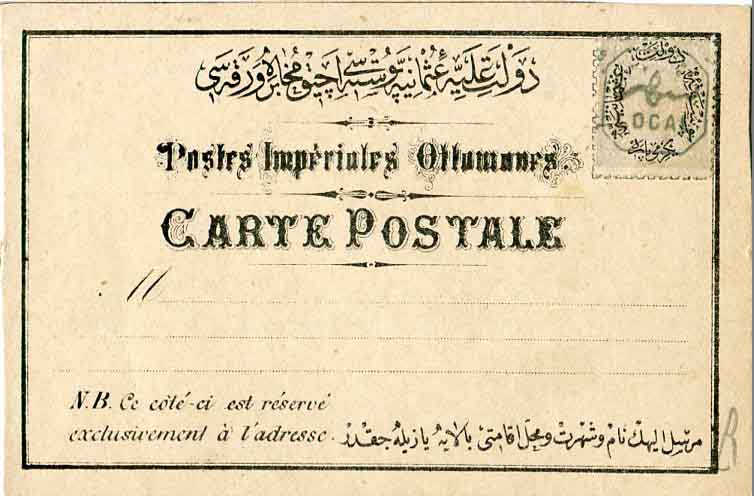 دولت علیه عثمانیه پوسته سی آچیق مخابره ورقه سی
Postes Impériales Ottomanes.
CARTE POSTALE
M
N.B. Ce côté-ci est réservé
exclusivement à l'adresse.
مرسل الیهك نام و شهرت و محل اقامتی بالایه یازیله جقدر
دولت
OCA